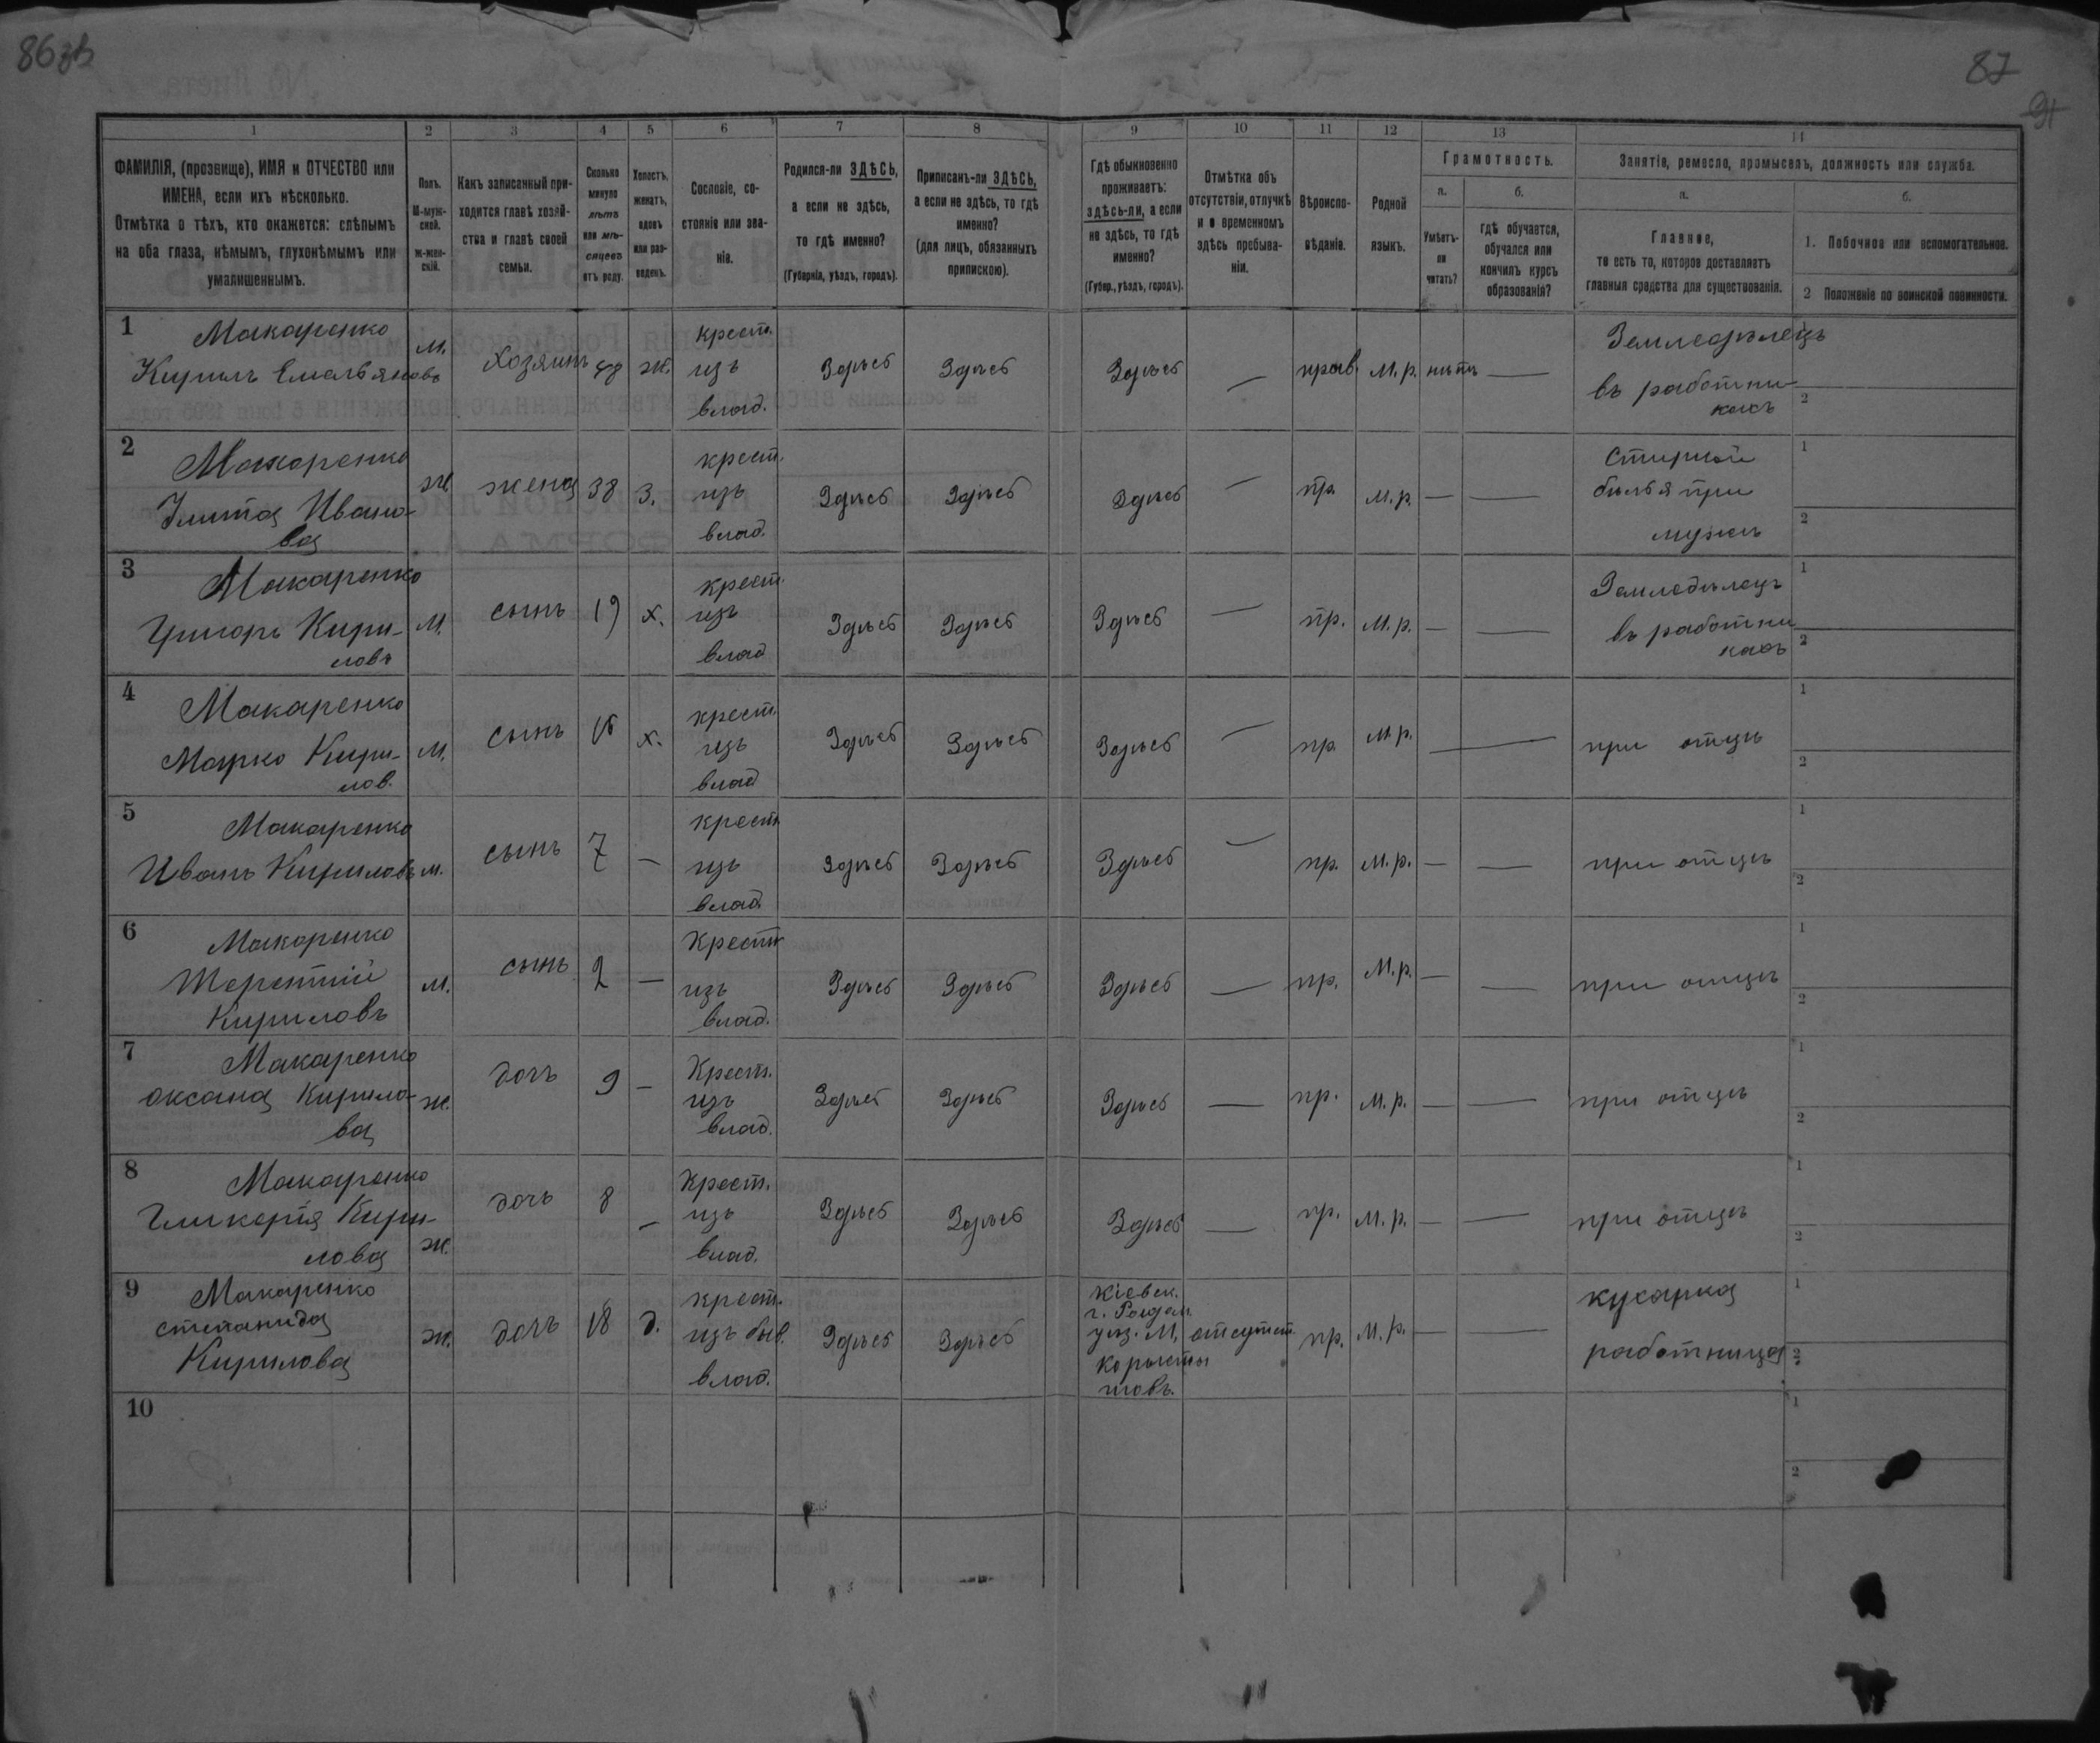 86зв
87
91
1 2 3 4 5 6 7 8 9 10 11 12 13 14
ФАМИЛІЯ, (прозвище), ИМЯ и ОТЧЕСТВО или
ИМЕНА, если ихъ нѣсколько.
Отмѣтка о тѣхъ, кто окажется: слѣпымъ
на оба глаза, нѣмымъ, глухонѣмымъ или
умалишеннымъ.
Полъ.
М-муж-
ской.
Ж-жен-
скій.
Какъ записанный при-
ходится главѣ хозяй-
ства и главѣ своей
семьи.
Сколько
минуло
лѣтъ
или мѣ-
сяцевъ
отъ роду.
Холостъ,
женатъ,
вдовъ
или раз-
веденъ.
Сословіе, со-
стояніе или зва-
ніе.
Родился-ли ЗДѢСЬ,
а если не здѣсь,
то гдѣ именно?
(Губернія, уѣздъ, городъ).
Приписанъ-ли ЗДѢСЬ,
а если не здѣсь, то гдѣ
именно?
(для лицъ, обязанныхъ
припискою).
Гдѣ обыкновенно
проживаетъ:
здѣсь-ли, а если
не здѣсь, то гдѣ
именно?
(Губер., уѣздъ, городъ).
Отмѣтка объ
отсутствіи, отлучкѣ
и о временномъ
здѣсь пребыва-
ніи.
Вѣроиспо-
вѣданіе.
Родной
языкъ.
Грамотность.
а.
Умѣетъ-
ли
читать?
б.
гдѣ обучается,
обучался или
кончилъ курсъ
образованія?
Занятіе, ремесло, промыселъ, должность или служба.
а.
Главное,
то есть то, которое доставляетъ
главныя средства для существованія.
б.
1. Побочное или вспомогательное.
2 Положеніе по воинской повинности.
1
Макаренко
Кирилъ Емельяновъ
м.
хозяинъ
ж.
крест.
изъ
влад.
Здѣсь
Здѣсь
Здѣсь
—
прав.
м.р.
нѣтъ
—
Земледѣлецъ
въ работни-
кахъ
2
2
Макаренко
Улита Ивано-
ва
ж
жена
38
з.
крест.
изъ
влад.
Здѣсь
Здѣсь
Здѣсь
—
пр
м.р.
—
—
Стиркой
бѣлья при
мужѣ
1
2
3
Макаренко
Григорь Кири-
ловъ
м.
сынъ
19
х.
крест.
изъ
влад
Здѣсь
Здѣсь
Здѣсь
—
пр.
м.р.
—
—
Земледѣлецъ
въ работни
кахъ
1
2
4
Макаренко
Марко Кири-
лов.
м.
сынъ
х.
крест.
изъ
влад
Здѣсь
Здѣсь
Здѣсь
—
пр
м.р.
—
при отцѣ
1
2
5
Макаренко
Иванъ Кириловъ
м.
сынъ
7
—
крест.
изъ
влад.
Здѣсь
Здѣсь
Здѣсь
—
пр.
м.р.
—
—
при отцѣ
1
2
6
Макаренко
Терентій
Кириловъ
м.
сынъ
2
—
Крест.
изъ
влад.
Здѣсь
Здѣсь
Здѣсь
—
пр.
м.р.
—
—
при отцѣ
1
2
7
Макаренко
оксана Кирило-
ва
ж.
дочь
9
—
Крест.
изъ
влад.
Здѣсь
Здѣсь
Здѣсь
—
пр.
м.р.
—
—
при отцѣ
1
2
8
Макаренко
Гликерія Кири-
лова
ж.
дочь
8
—
Крест.
изъ
влад.
Здѣсь
Здѣсь
Здѣсь
—
пр.
м.р.
—
—
при отцѣ
1
2
9
Макаренко
степанида
Кирилова
ж.
дочь
18
д.
крест.
изъ быв.
влад.
Здѣсь
Здѣсь
Кіевск.
уѣз. М.
отсутст.
пр.
м.р.
—
—
кухарка
работница
1
2
10
1
2